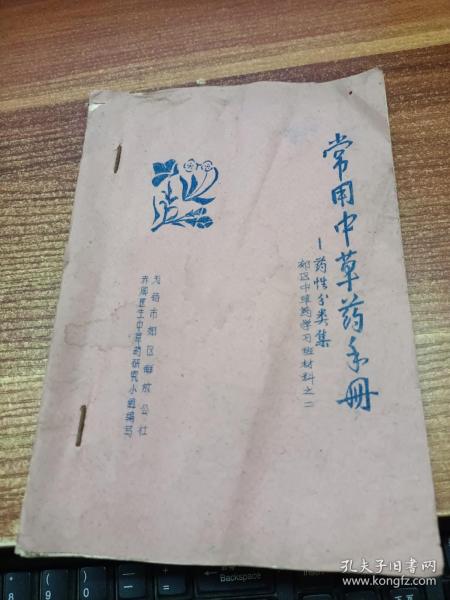 常用中草药手册
—药性分类集
郊区中草药学习班材料之二
无锡市郊区解放公社
赤脚医生中草药研究小组编写
Backspace
Insert
8
9
0
孔夫子旧书网
www.kongfz.com